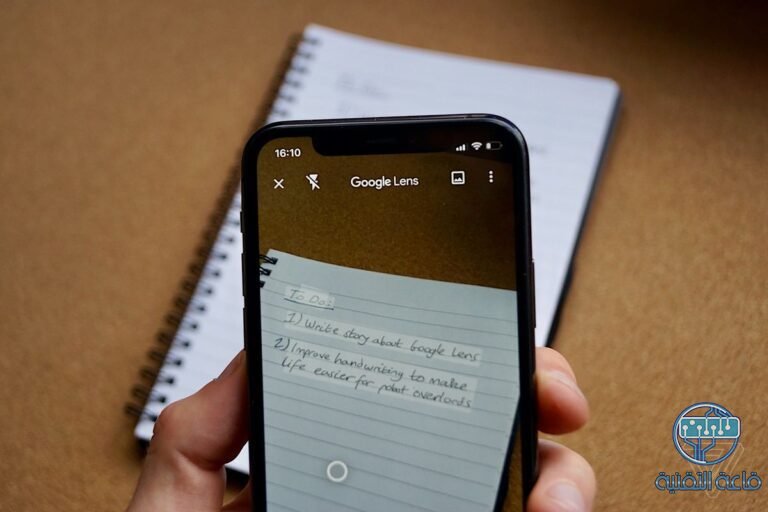 16:10
Google Lens
To Do:
1) Write story about Google Lens
2) Improve handwriting to make
life easier for robot overlords
قاعة التقنية